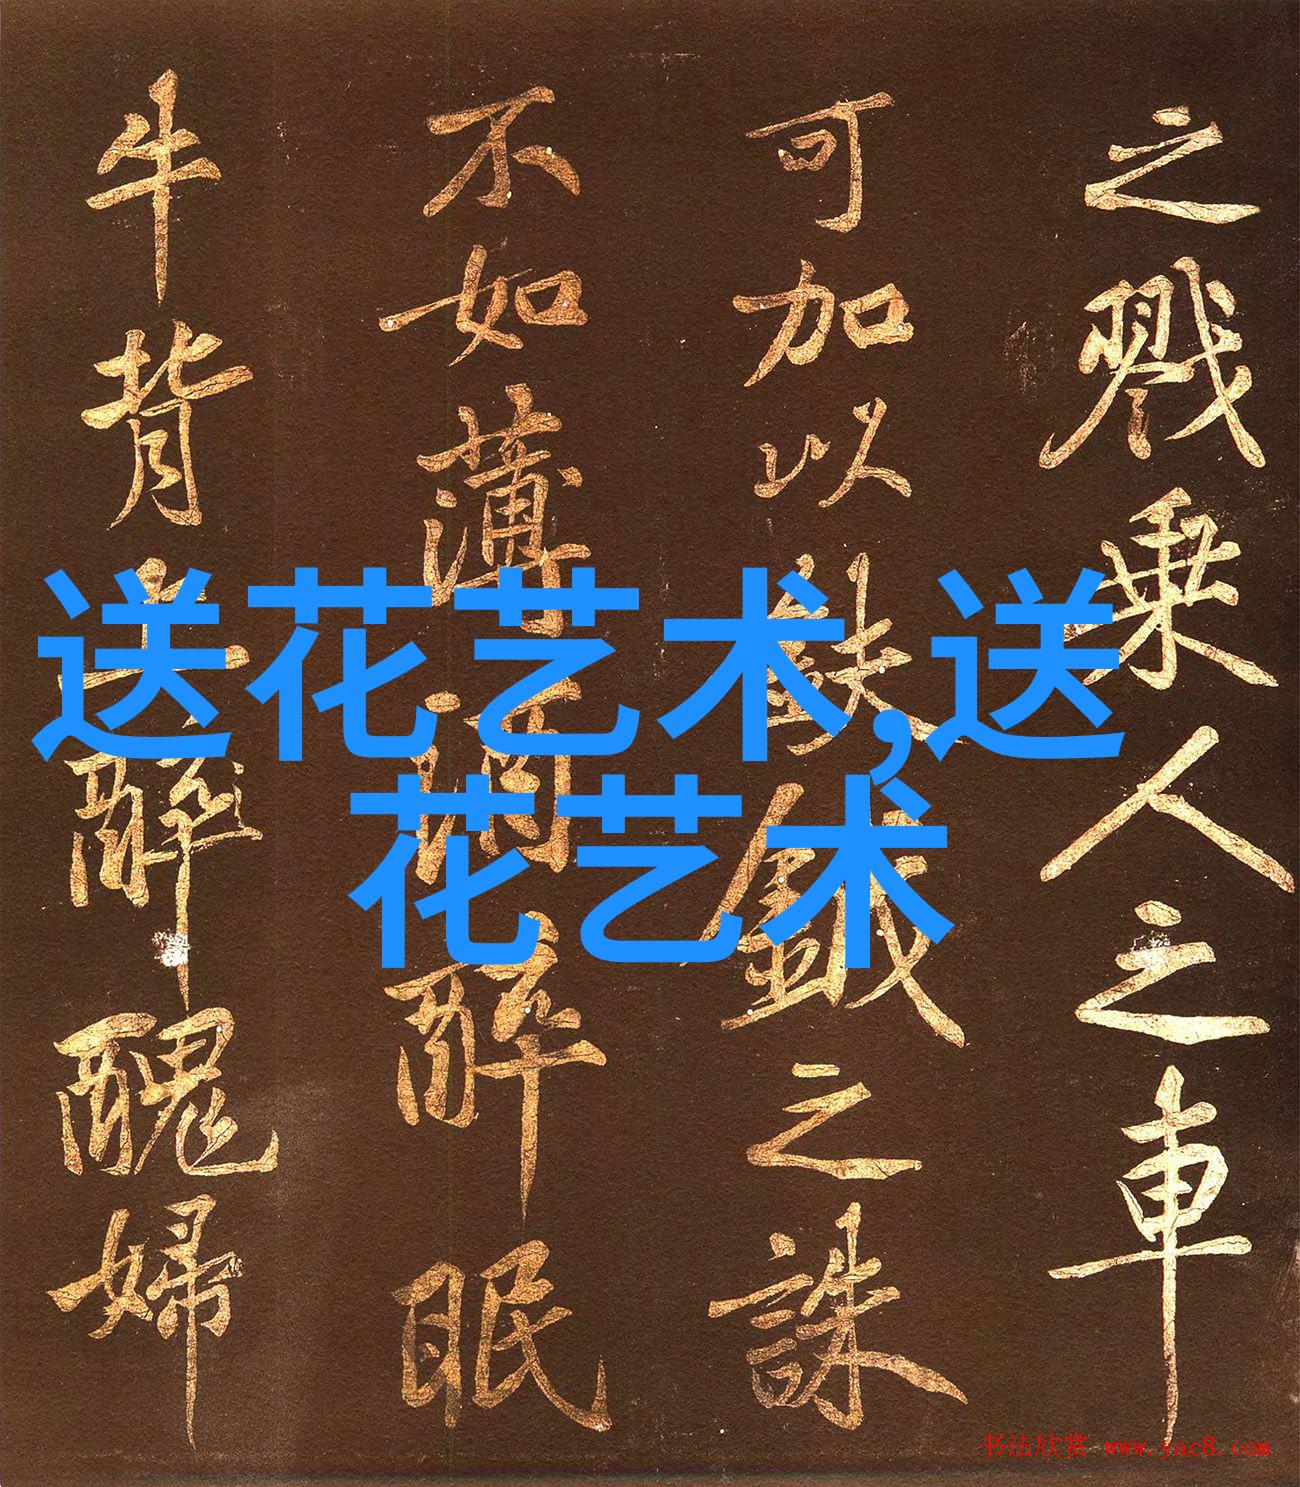 之戮乘人之車
可加以鈇鉞之誅
不如薄酒醉眠
牛背上醉醜婦
送花艺术,送
花艺术
书法欣赏 www.yac8.com